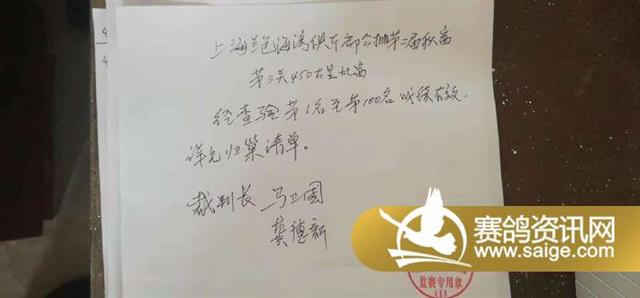 上海蓝色海湾俱乐部公棚第二届秋赛
第三关450公里比赛
经查验第1名至第100名成绩有效.
详见归巢清单。
裁判长 马卫国
龚德新
监赛专用章
(1)
赛鸽资讯网
www.saige.com